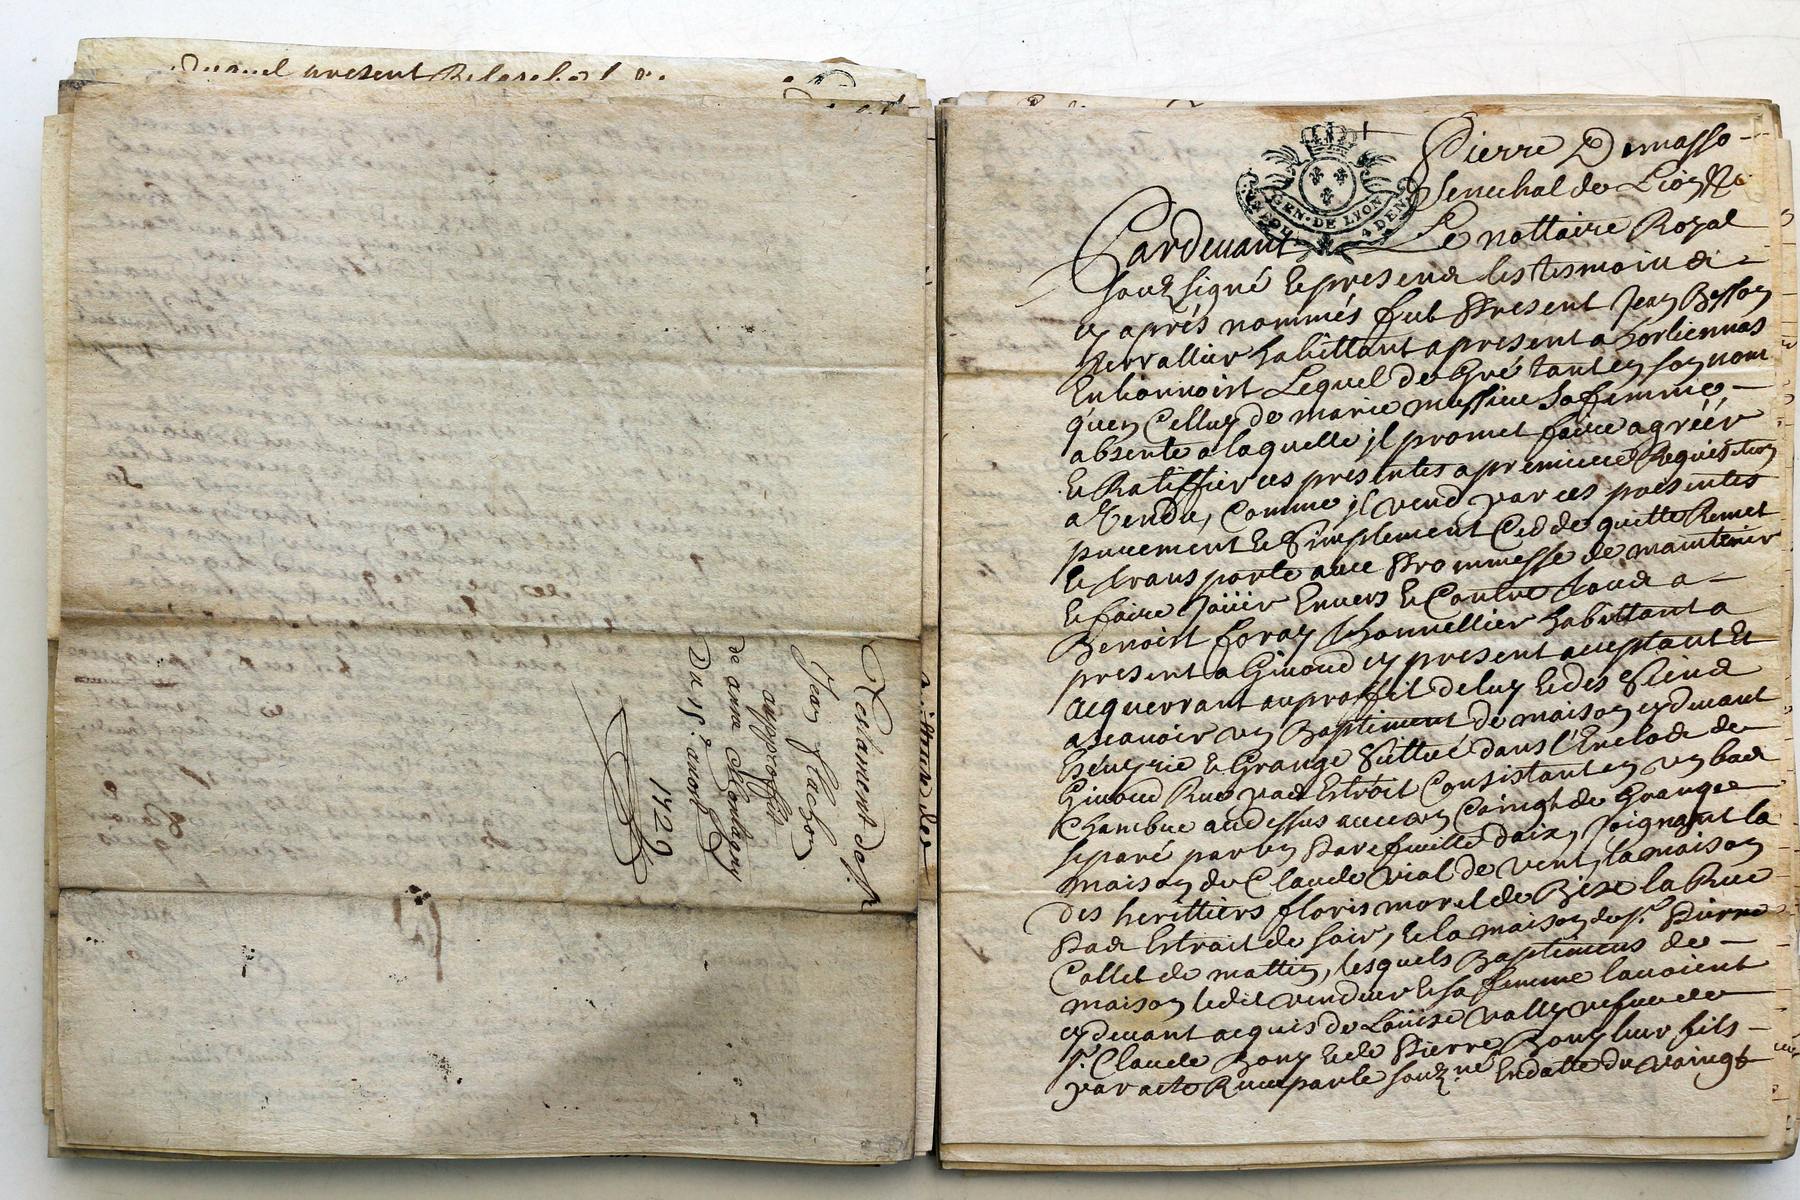 Duquel present
Testament de Sr.
Jean flachon
approffit
de anne
Du 15e. avost
1729
GEN·DE LYON
4 DEN
Pierre Demasso
Senechal de Lion &c
Pardevant Le nottaire Royal
souzsigné & presend les tesmoind
cy aprés nommés fut Present Jean Besson
ferrallier habittant apresent a Sorliennas
En lionnoist Lequel de Gré tant en son nom
quen Celluy de marie messiere Sa femme
absente a laquelle jl promet faire agréér
& Ratiffier ces presentes a premiere Requisition
a Vendu, Comme jl vend par ces presentes
purement & Simplement Cedde quitte Remet
& transporte avec Prommesse de maintenir
& faire Joüir Envers & Contre toud a
Benoist foray thonnellier habittant a
present a Givord cy present acceptant &
acquerrant au proffit de luy & des Siend
ascavoir un Baptiment de maison cy devant
Escuyrie & Grange Sittué dans l'Enclod de
Givord Rue pad Estroit Consistant en un bad
Chambre au dessus avec un Coingt de Grange
separé par un Parefuille daix, Joignant la
maison de Claude vial de vent, la maison
des herittiers floris morel de Bize la Rue
Pad Estroit de soir, & la maison de Sr. Pierre
Collet de mattin, lesquels Baptimens de
maison ledit vendeur & sa femme lavoient
cy devant acquis de Loüise vally vefve de
Sr. Claude Bony & de Pierre Bony leur fils
par acte Receu par le souzné. En datte du vaingt